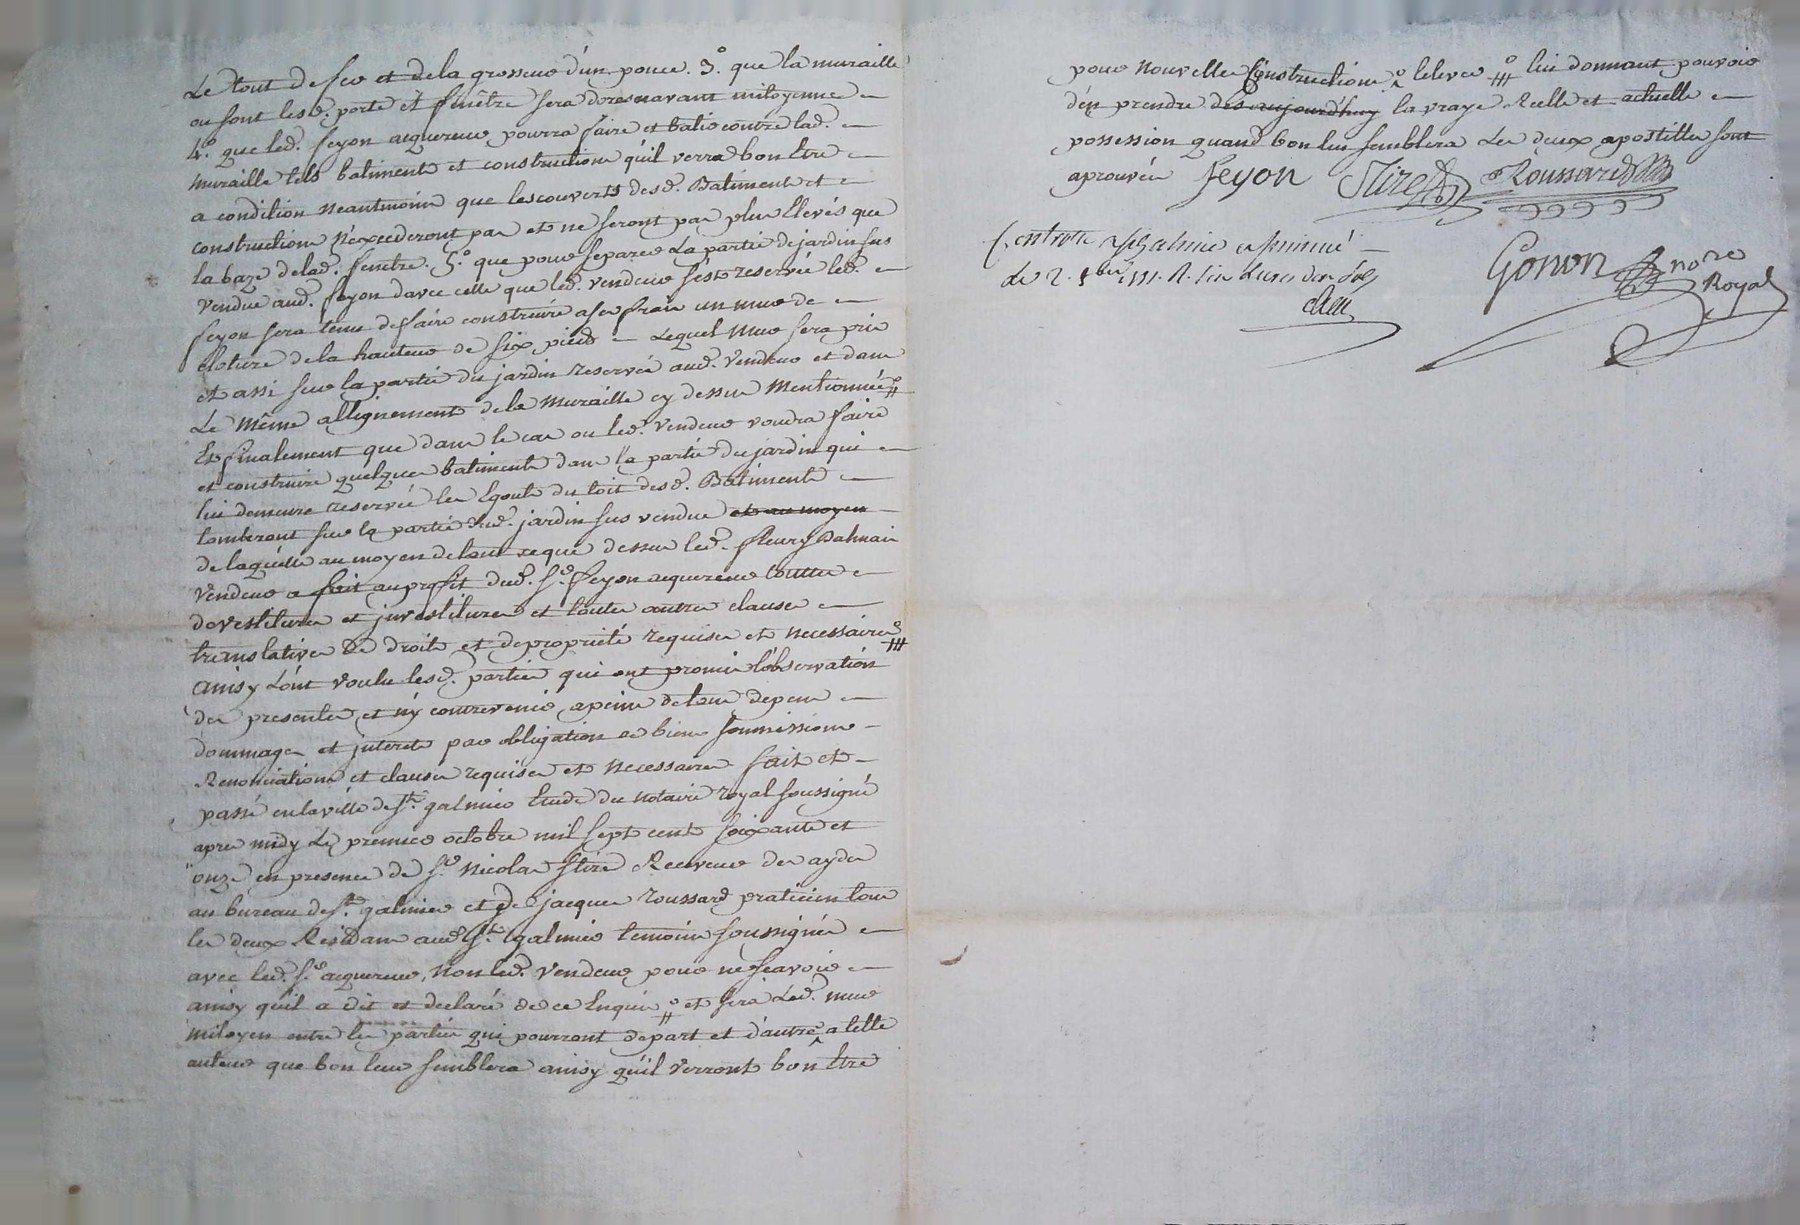 Le tout de fer et de la grosseur d'un pouce. 3.° que la muraille
ou sont lesd. porte et fenêtre sera doresnavant mitoyenne
4.° que led. feyon acquereur pourra faire et batir contre lad.
muraille tels batiments et constructions qu'il verra bon être
a condition neantmoins que les couverts desd. Batiments et
constructions n'exxederont pas et ne seront pas plus Elevés que
la baze de lad. fenêtre. 5.° que pour separer la partie de jardin sus
vendue aud. feyon davec celle que led. vendeur s'est reservée led.
feyon sera tenu de faire construire a ses frais un mur de
cloture de la hauteur de six pieds Lequel mur sera pris
et assi sur la partie du jardin reservée aud. Vendeur et dans
Le même allignement de la Muraille cy dessus Mentionnée
Et finalement que dans le cas ou led. Vendeur voudra faire
et construire quelques batiments dans la partie du jardin qui
lui demeure reservée les Egouts du toit desd. Batiments
tomberont sur la partie dud. jardin sus vendue et au moyen
de laquelle au moyen de tout ce que dessus led. fleury
Vendeur a fait au profit dud. S.r feyon acquereur touttes
dovestitures et investitures et toutes autres clauses
translatives de droits et de propriété requises et necessaires
ainsy L'ont voulu lesd. parties qui ont promis l'observation
des presentes et n'y contrevenir a peine de tous depens
dommages et interets par obligation de biens soumissions
Renonciations et clauses requises et necessaires fait et
passé en la ville de St. galmier Etude du notaire royal soussigné
apres midy Le premier octobre mil sept cent soixante et
onze en presence de S.r Nicolas Stire Receveur des aydes
au bureau de St. galmier et de jacques roussard praticien tous
les deux Residans aud. St. galmier temoins soussignés
avec led. S.r acquereur, non led. Vendeur pour ne sçavoir
ainsy qu'il a dit et declaré de ce Enquis et sera Led. mur
mitoyen entre les parties qui pourront de part et d'autre a telle
auteur que bon leur semblera ainsy qu'il verront bon être
pour nouvelles Constructions lelever lui donnant pouvoir
d'en prendre dès aujourd'huy la vraye Reelle et actuelle
possession quand bon lui semblera Les deux apostilles sont
aprouvées feyon Stire Roussard
Controllé a St Galmier et insinué
Le 2. 8bre 1771. R.
Gonon nore
Royal